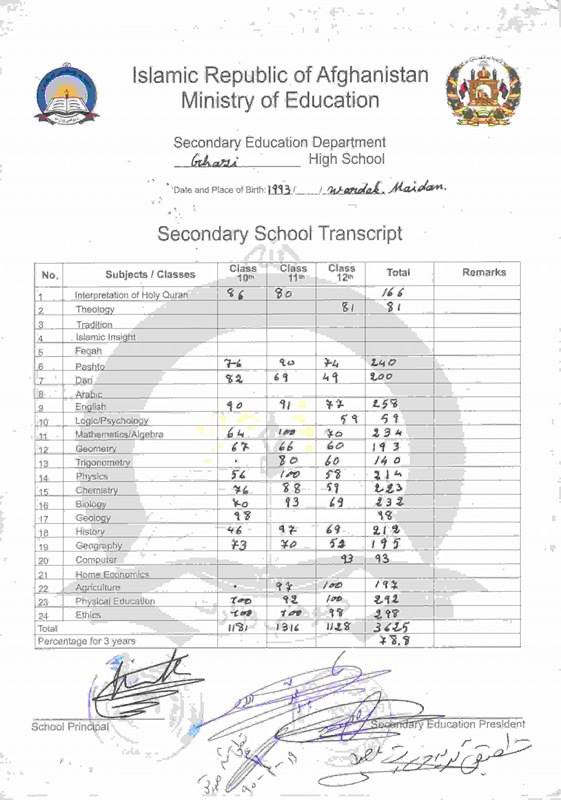 Islamic Republic of Afghanistan
Ministry of Education
Secondary Education Department
Ghazi High School
Date and Place of Birth: 1993/ / Wardak. Maidan.
Secondary School Transcript
No. Subjects / Classes Class 10th Class 11th Class 12th Total Remarks
1 Interpretation of Holy Quran 86 80 166
2 Theology 81 81
3 Tradition
4 Islamic Insight
5 Feqah
6 Pashto 76 90 74 240
7 Dari 82 69 49 200
8 Arabic
9 English 90 91 77 258
10 Logic/Psychology 59 59
11 Mathematics/Algebra 64 100 70 234
12 Geometry 67 66 60 193
13 Trigonometry . 80 60 140
14 Physics 56 100 58 214
15 Chemistry 76 88 59 223
16 Biology 70 93 69 232
17 Geology 98 98
18 History 46 97 69 212
19 Geography 73 70 52 195
20 Computer 93 93
21 Home Economics
22 Agriculture . 97 100 197
23 Physical Education 100 92 100 292
24 Ethics 100 100 98 298
Total 1181 1316 1128 3625
Percentage for 3 years 78.8
School Principal
Secondary Education President